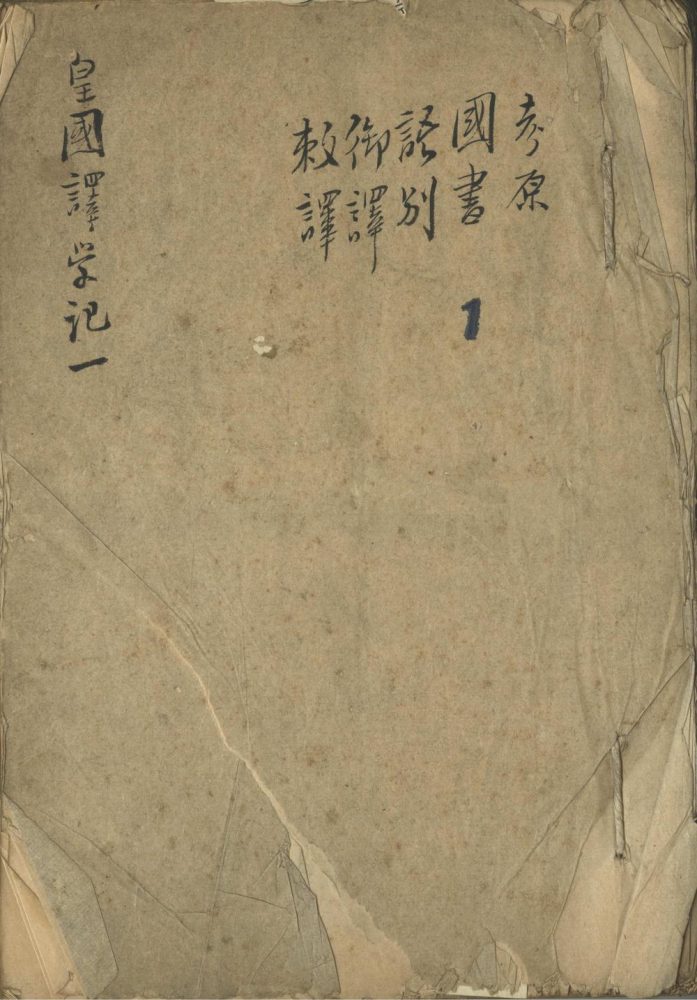 考原
國書
1
語別
御譯
敕譯
皇國譯学記一